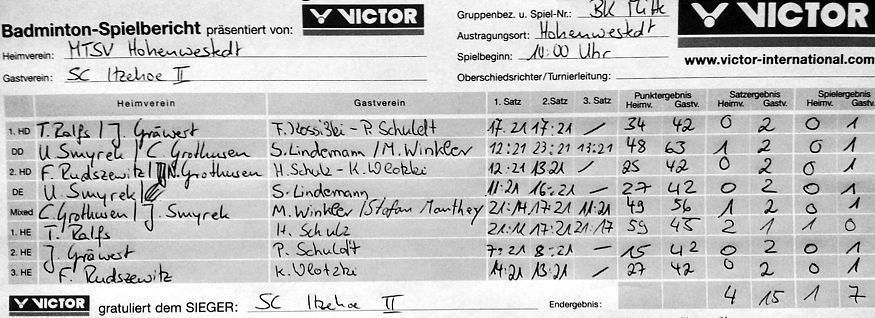 Badminton-Spielbericht präsentiert von: VICTOR
Gruppenbez. u. Spiel-Nr.: BK Mitte
VICTOR
Heimverein: MTSV Hohenwestedt
Austragungsort: Hohenwestedt
Gastverein: SC Itzehoe II
Spielbeginn: 10:00 Uhr
www.victor-international.com
Oberschiedsrichter/Turnierleitung:
Heimverein Gastverein 1. Satz 2. Satz 3. Satz Punktergebnis Heimv. Gastv. Satzergebnis Heimv. Gastv. Spielergebnis Heimv. Gastv.
1. HD T. Ralfs / J. Gräwert F. Kossiski - P. Schuldt 17:21 17:21 / 34 42 0 2 0 1
DD U. Smyrek / C. Grothusen S. Lindemann / M. Winkler 12:21 23:21 13:21 48 63 1 2 0 1
2. HD F. Rudszewitz / N. Grothusen H. Schulz - K. Vlotzki 12:21 13:21 / 25 42 0 2 0 1
DE U. Smyrek S. Lindemann 11:21 16:21 / 27 42 0 2 0 1
Mixed C. Grothusen / J. Smyrek M. Winkler / Stefan Manthey 21:14 17:21 11:21 49 56 1 2 0 1
1. HE T. Ralfs H. Schulz 17:21 21:17 59 45 2 1 1 0
2. HE J. Gräwert P. Schuldt 7:21 8:21 / 15 42 0 2 0 1
3. HE F. Rudszewitz K. Vlotzki 14:21 13:21 / 27 42 0 2 0 1
VICTOR gratuliert dem SIEGER: SC Itzehoe II Endergebnis: 4 15 1 7